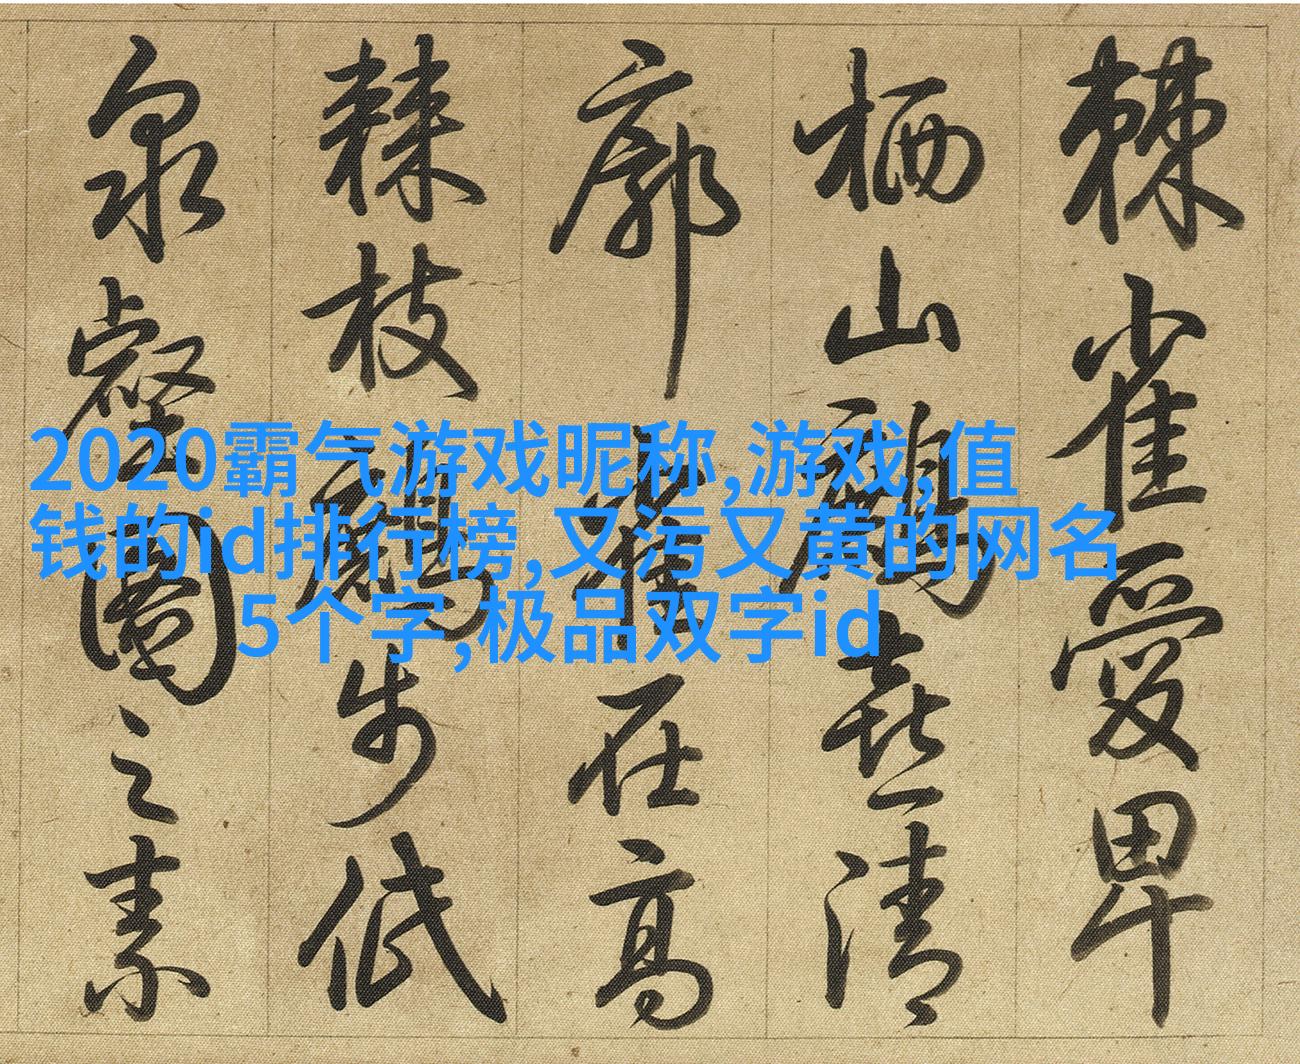 棘雀愛卑
栖山鷓喜清
廓雀在高
棘枝鷓步低
泉壑園之素
2020霸气游戏昵称,游戏,值
钱的id排行榜,又污又黄的网名
5个字,极品双字id